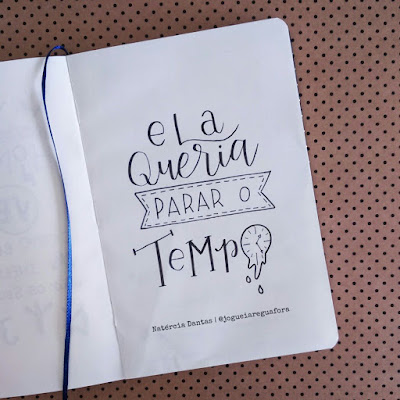 e La
Queria
PARAR O
TeMPO
Natércia Dantas | @jogueiareguafora